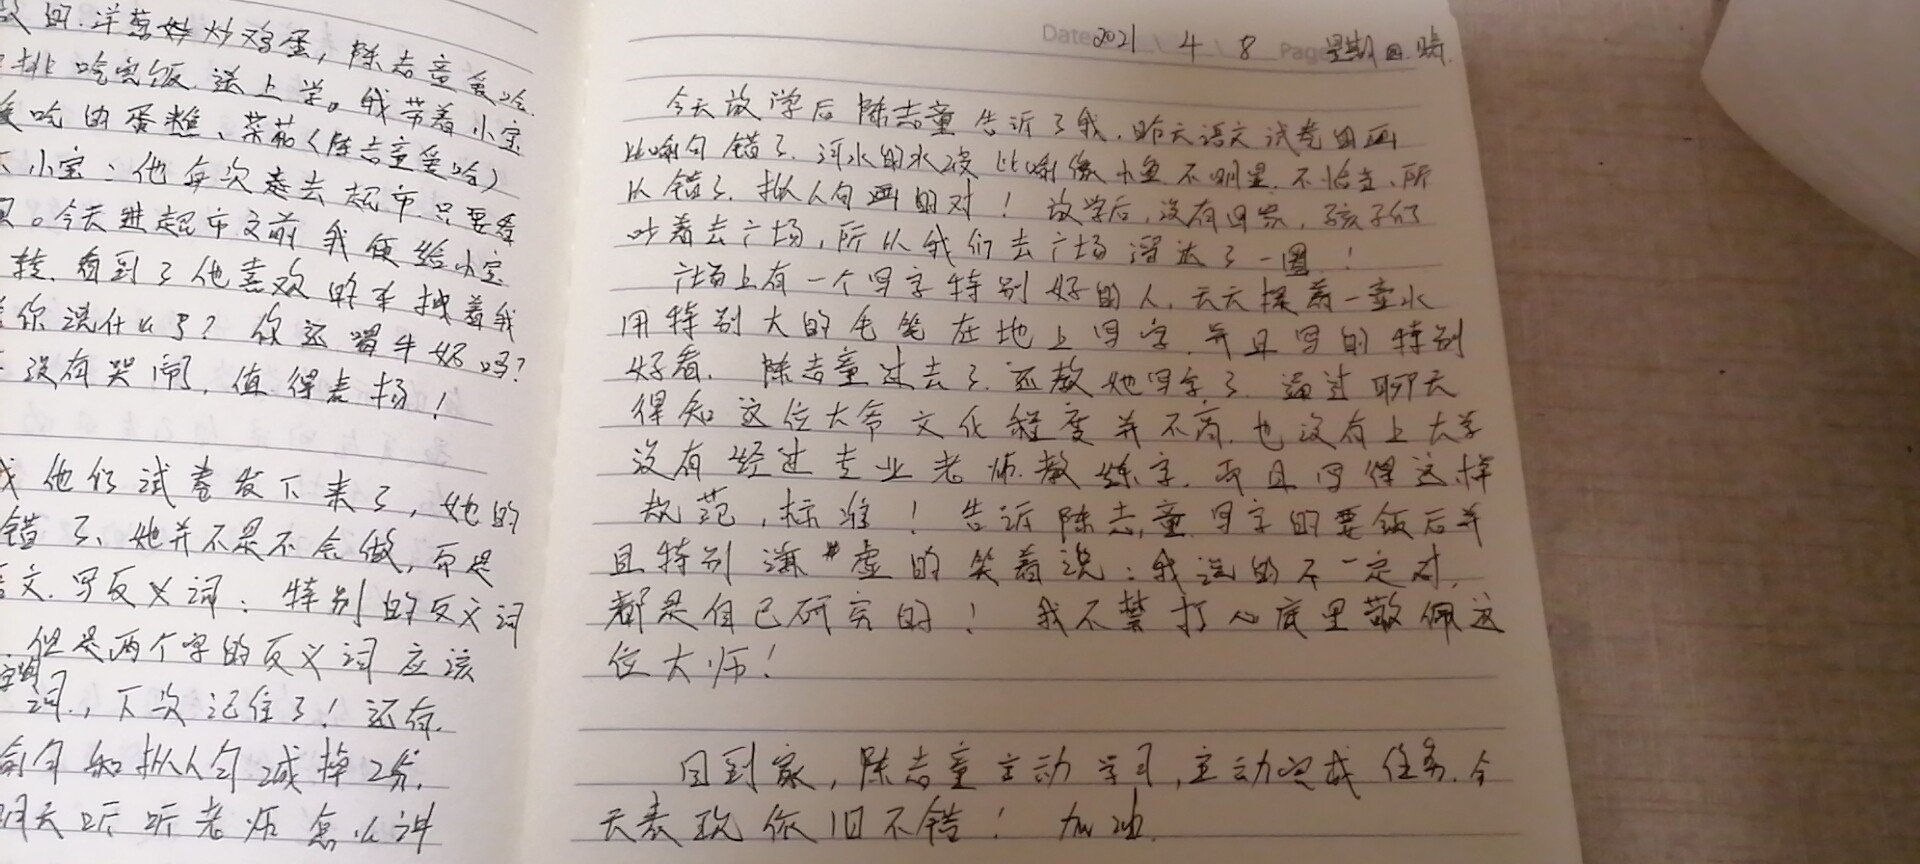 的.洋葱炒鸡蛋,陈志童爱吃
排吃完饭送上学。我带着小宝
吃的蛋糕、茶菇(陈志童爱吃)
小宝:他每次走去超市只要
。今天进超市之前我便给小宝
转.看到了他喜欢的车拽着我
你说什么了?你还喝牛奶吗?
没有哭闹.值得表扬!
他们试卷发下来了,她的
错了、她并不是不会做,而是
文.写反义词:特别的反义词
.但是两个字的反义词应该
词.,下次记住了!还有.
句和拟人句减掉2分.
明天听听老师怎么讲
Date 2021 \ 4 \ 8 Page 星期四.晴.
今天放学后陈志童告诉了我.昨天语文试卷的画
比喻句错了.河水的水波比喻像小鱼不明显.不恰当、所
以错了.拟人句画的对!放学后,没有回家,孩子们
吵着去广场,所以我们去广场溜达了一圈!
广场上有一个写字特别好的人.天天提着一壶水
用特别大的毛笔在地上写字.并且写的特别
好看.陈志童过去了.还教她写字了.通过聊天
得知这位大爷文化程度并不高.也没有上大学
没有经过专业老师教练字.而且写得这样
规范,标准!告诉陈志童写字的要饭后并
且特别谦虚的笑着说:我说的不一定对.
都是自己研究的!我不禁打心底里敬佩这
位大师!
回到家,陈志童主动学习,主动完成任务.今
天表现依旧不错!加油.